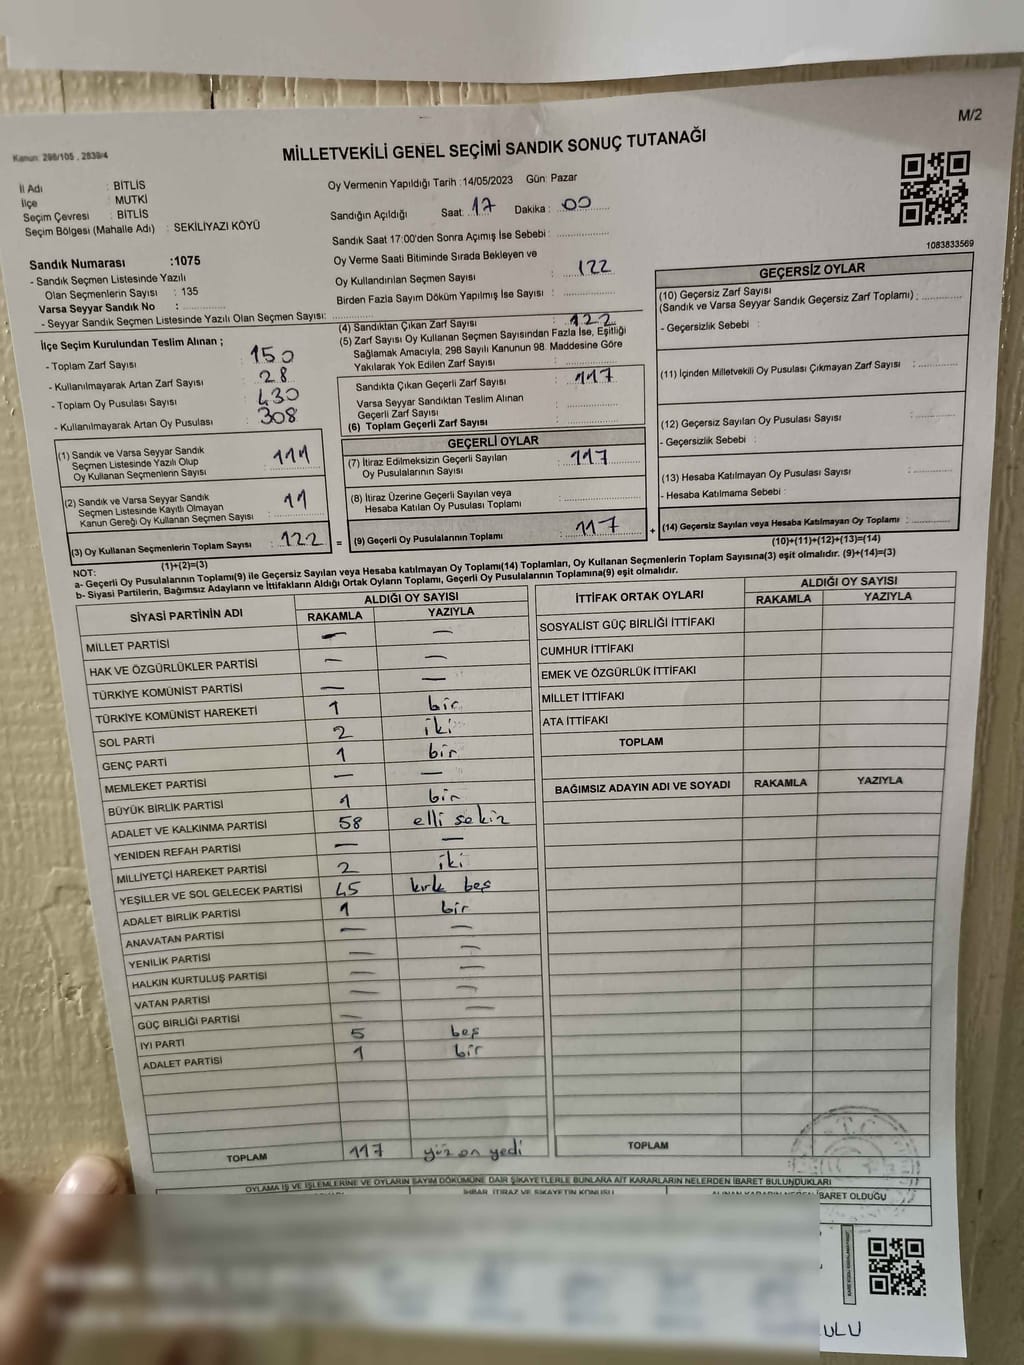 M/2
Kanun: 298/105 , 2839/4
MİLLETVEKİLİ GENEL SEÇİMİ SANDIK SONUÇ TUTANAĞI
İl Adı : BİTLİS
İlçe : MUTKİ
Seçim Çevresi : BİTLİS
Seçim Bölgesi (Mahalle Adı) : SEKİLİYAZI KÖYÜ
Sandık Numarası :1075
- Sandık Seçmen Listesinde Yazılı
Olan Seçmenlerin Sayısı : 135
Varsa Seyyar Sandık No :
- Seyyar Sandık Seçmen Listesinde Yazılı Olan Seçmen Sayısı:
Oy Vermenin Yapıldığı Tarih :14/05/2023 Gün: Pazar
Sandığın Açıldığı Saat: 17 Dakika : 00
Sandık Saat 17:00'den Sonra Açımış İse Sebebi :
Oy Verme Saati Bitiminde Sırada Bekleyen ve
Oy Kullandırılan Seçmen Sayısı : 122
Birden Fazla Sayım Döküm Yapılmış İse Sayısı :
1083833569
İlçe Seçim Kurulundan Teslim Alınan ;
- Toplam Zarf Sayısı : 150
- Kullanılmayarak Artan Zarf Sayısı : 28
- Toplam Oy Pusulası Sayısı : 430
- Kullanılmayarak Artan Oy Pusulası : 308
(1) Sandık ve Varsa Seyyar Sandık
Seçmen Listesinde Yazılı Olup
Oy Kullanan Seçmenlerin Sayısı : 111
(2) Sandık ve Varsa Seyyar Sandık
Seçmen Listesinde Kayıtlı Olmayan
Kanun Gereği Oy Kullanan Seçmen Sayısı : 11
(3) Oy Kullanan Seçmenlerin Toplam Sayısı : 122
(1)+(2)=(3)
(4) Sandıktan Çıkan Zarf Sayısı : 122
(5) Zarf Sayısı Oy Kullanan Seçmen Sayısından Fazla İse, Eşitliği
Sağlamak Amacıyla, 298 Sayılı Kanunun 98. Maddesine Göre
Yakılarak Yok Edilen Zarf Sayısı :
Sandıkta Çıkan Geçerli Zarf Sayısı : 117
Varsa Seyyar Sandıktan Teslim Alınan
Geçerli Zarf Sayısı :
(6) Toplam Geçerli Zarf Sayısı :
GEÇERLİ OYLAR
(7) İtiraz Edilmeksizin Geçerli Sayılan
Oy Pusulalarının Sayısı : 117
(8) İtiraz Üzerine Geçerli Sayılan veya
Hesaba Katılan Oy Pusulası Toplamı :
= (9) Geçerli Oy Pusulalarının Toplamı : 117 +
GEÇERSİZ OYLAR
(10) Geçersiz Zarf Sayısı
(Sandık ve Varsa Seyyar Sandık Geçersiz Zarf Toplamı) :
- Geçersizlik Sebebi :
(11) İçinden Milletvekili Oy Pusulası Çıkmayan Zarf Sayısı :
(12) Geçersiz Sayılan Oy Pusulası Sayısı :
- Geçersizlik Sebebi :
(13) Hesaba Katılmayan Oy Pusulası Sayısı :
- Hesaba Katılmama Sebebi :
(14) Geçersiz Sayılan veya Hesaba Katılmayan Oy Toplamı :
(10)+(11)+(12)+(13)=(14)
NOT:
a- Geçerli Oy Pusulalarının Toplamı(9) ile Geçersiz Sayılan veya Hesaba katılmayan Oy Toplamı(14) Toplamları, Oy Kullanan Seçmenlerin Toplam Sayısına(3) eşit olmalıdır. (9)+(14)=(3)
b- Siyasi Partilerin, Bağımsız Adayların ve İttifakların Aldığı Ortak Oyların Toplamı, Geçerli Oy Pusulalarının Toplamına(9) eşit olmalıdır.
SİYASİ PARTİNİN ADI ALDIĞI OY SAYISI
RAKAMLA YAZIYLA
MİLLET PARTİSİ — —
HAK VE ÖZGÜRLÜKLER PARTİSİ — —
TÜRKİYE KOMÜNİST PARTİSİ — —
TÜRKİYE KOMÜNİST HAREKETİ 1 bir
SOL PARTİ 2 iki
GENÇ PARTİ 1 bir
MEMLEKET PARTİSİ — —
BÜYÜK BİRLİK PARTİSİ 1 bir
ADALET VE KALKINMA PARTİSİ 58 elli sekiz
YENİDEN REFAH PARTİSİ — —
MİLLİYETÇİ HAREKET PARTİSİ 2 iki
YEŞİLLER VE SOL GELECEK PARTİSİ 45 kırk beş
ADALET BİRLİK PARTİSİ 1 bir
ANAVATAN PARTİSİ — —
YENİLİK PARTİSİ — —
HALKIN KURTULUŞ PARTİSİ — —
VATAN PARTİSİ — —
GÜÇ BİRLİĞİ PARTİSİ — —
İYİ PARTİ 5 beş
ADALET PARTİSİ 1 bir
TOPLAM 117 yüz on yedi
İTTİFAK ORTAK OYLARI ALDIĞI OY SAYISI
RAKAMLA YAZIYLA
SOSYALİST GÜÇ BİRLİĞİ İTTİFAKI
CUMHUR İTTİFAKI
EMEK VE ÖZGÜRLÜK İTTİFAKI
MİLLET İTTİFAKI
ATA İTTİFAKI
TOPLAM
BAĞIMSIZ ADAYIN ADI VE SOYADI RAKAMLA YAZIYLA
TOPLAM
T.C.
OYLAMA İŞ VE İŞLEMLERİNE VE OYLARIN SAYIM DÖKÜMÜNE DAİR ŞİKAYETLERLE BUNLARA AİT KARARLARIN NELERDEN İBARET BULUNDUKLARI
İHBAR, İTİRAZ VE ŞİKAYETİN KONUSU
İBARET OLDUĞU
ULU